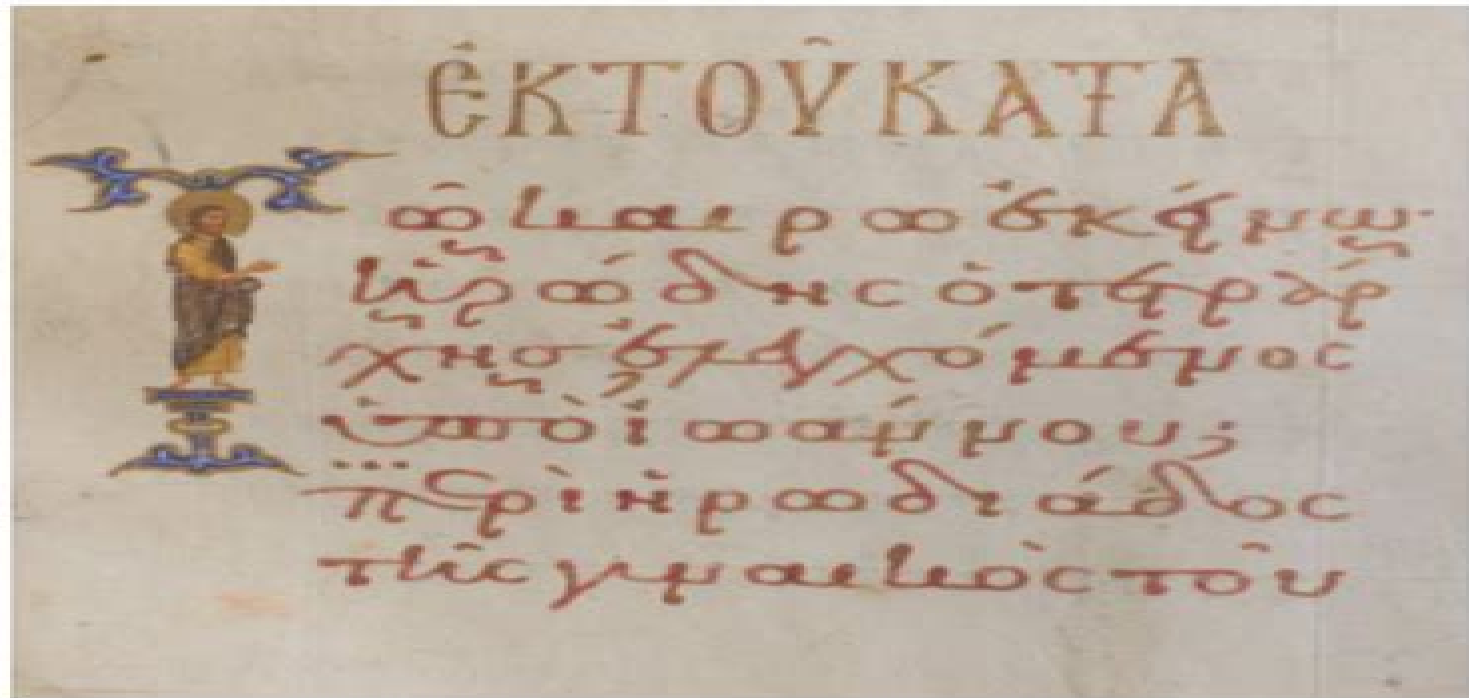 ἘΚ ΤΟΥ͂ ΚΑΤΑ
Τῶ καιρῶ ἐκείνω·
ἡρώδης ὁ τετράρ
χης ἐλεγχόμενος
ὑπὸ ἰωάννου,
περὶ ἡρωδιάδος
τῆς γυναικὸς τοῦ